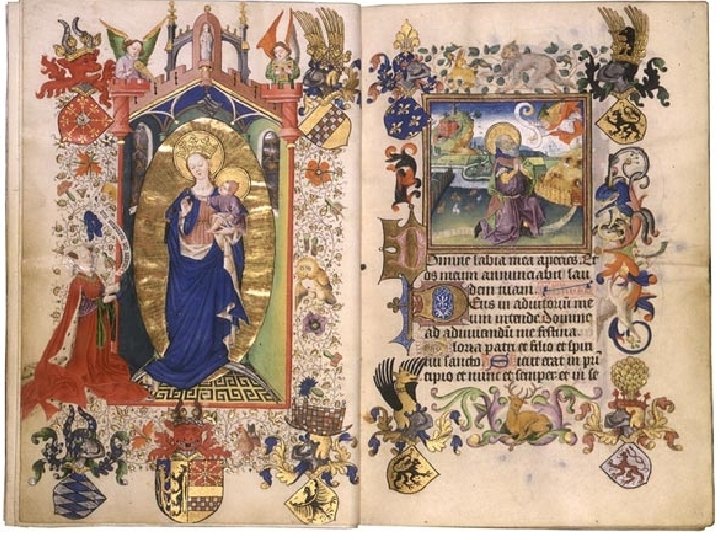 Domine labia mea aperies. Et
os meum annunciabit lau
dem tuam.
Deus in adiutoriu me
um intende Domine
ad adiuvandu me festina.
loria patri et filio et spiri
tui sancto Sicut erat in pri
cipio et nunc et semper et in se